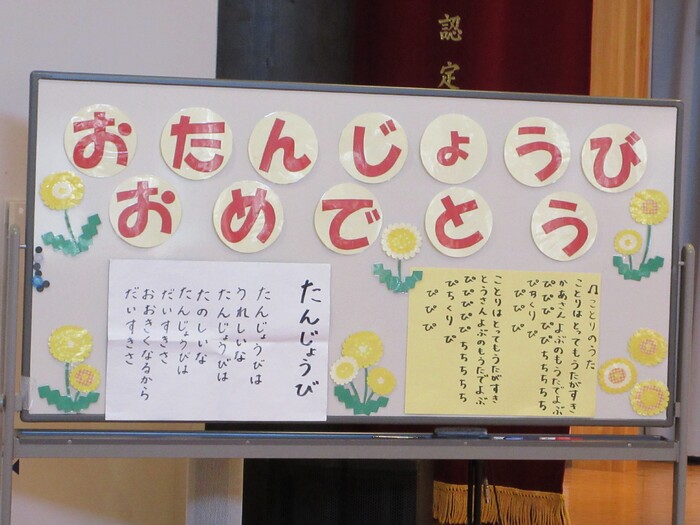 認定
おたんじょうび
おめでとう
たんじょうび
たんじょうびは
うれしいな
たんじょうびは
たのしいな
たんじょうびは
だいすきさ
おおきくなるから
だいすきさ
♫ことりのうた
ことりはとってもうたがすき
かあさんよぶのもうたでよぶ
ぴぴぴぴぴちちちちち
ぴちくりぴ
ことりはとってもうたがすき
とうさんよぶのもうたでよぶ
ぴぴぴぴぴちちちちち
ぴちくりぴ
ぴぴぴ